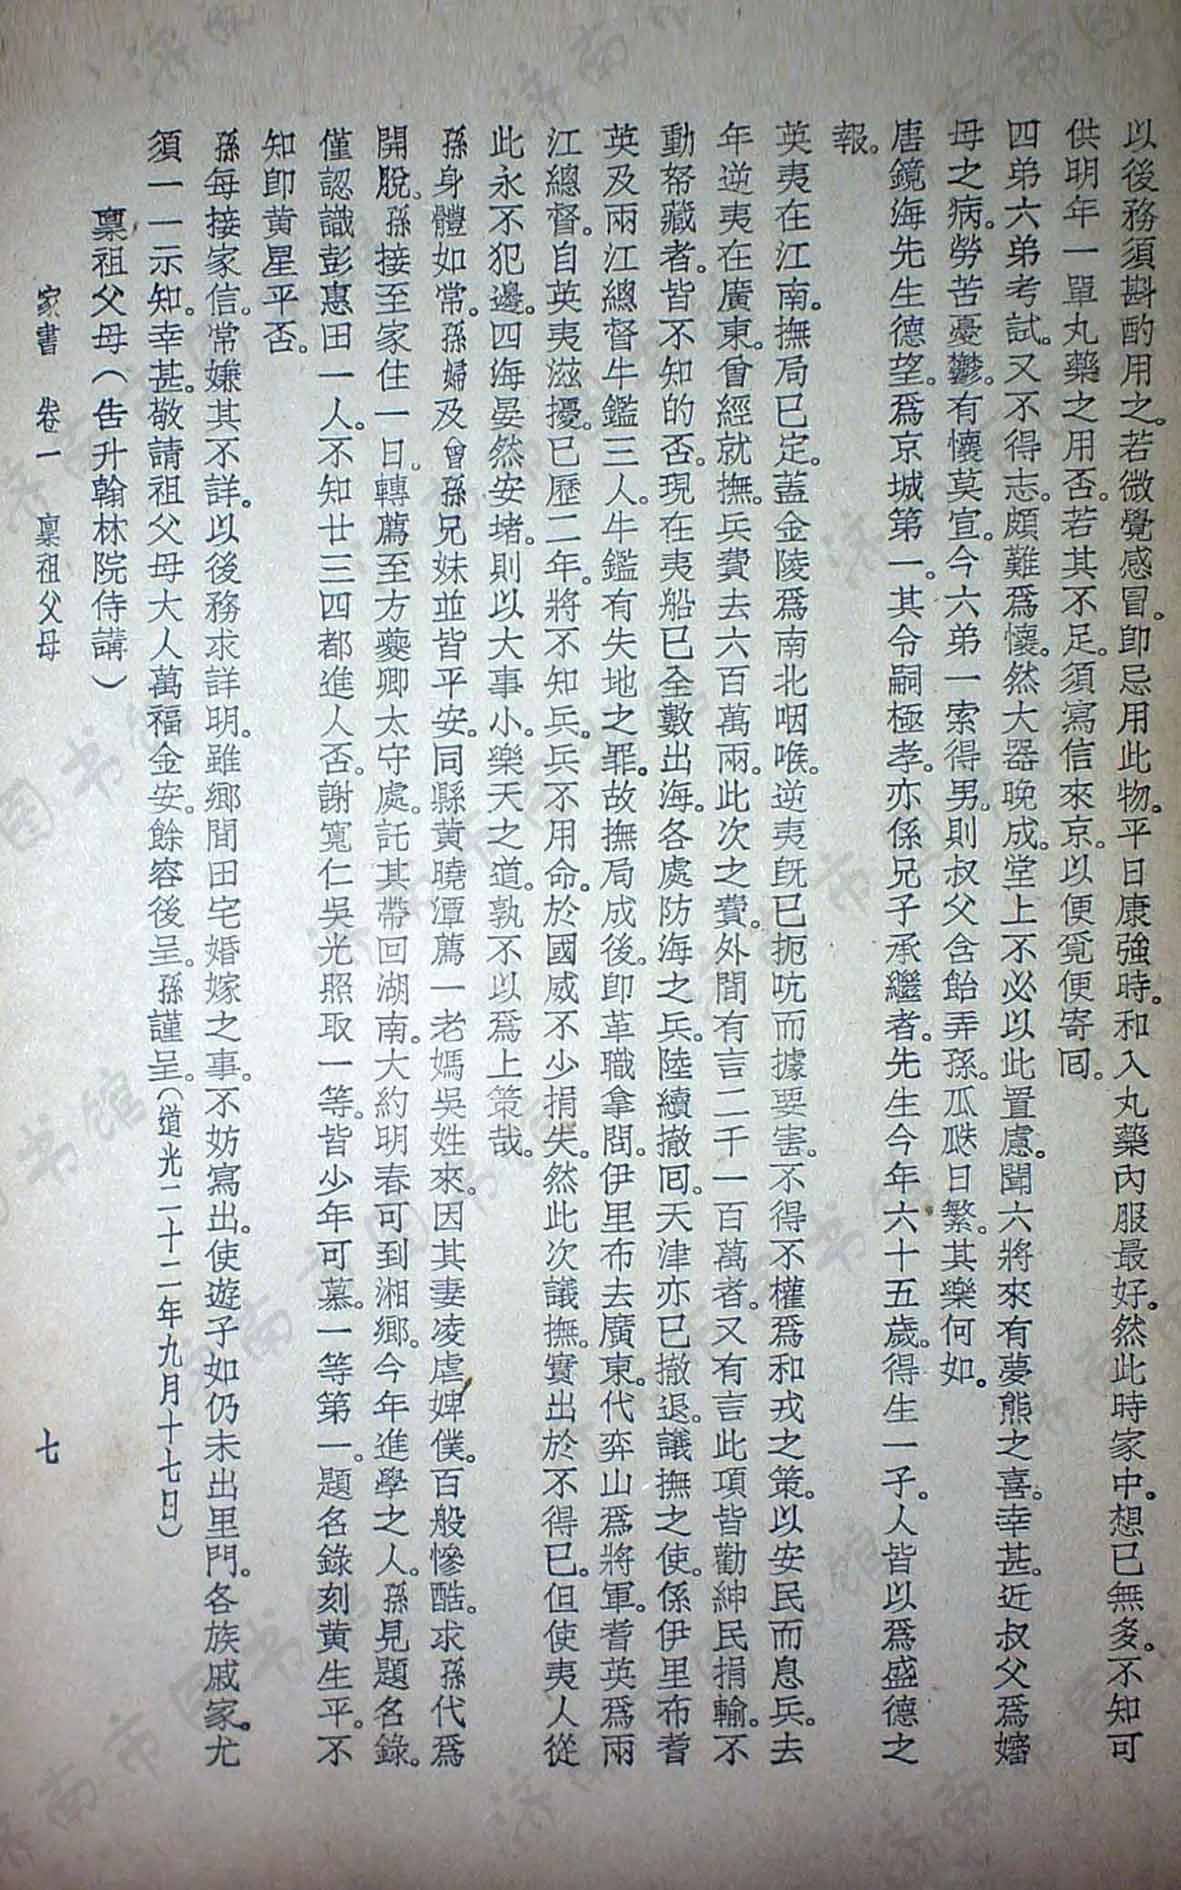 以後務須斟酌用之。若微覺感冒。卽忌用此物。平日康強時。和入丸藥內服最好。然此時家中。想已無多。不知可
供明年一單丸藥之用否。若其不足。須寫信來京。以便覓便寄回。
四弟六弟考試。又不得志。頗難爲懷。然大器晚成。堂上不必以此置慮。聞六將來有夢熊之喜。幸甚。近叔父爲嬸
母之病。勞苦憂鬱。有懷莫宣。今六弟一索得男。則叔父含飴弄孫。瓜瓞日繁。其樂何如。
唐鏡海先生德望。爲京城第一。其令嗣極孝。亦係兄子承繼者。先生今年六十五歲。得生一子。人皆以爲盛德之
報。
英夷在江南。撫局已定。蓋金陵爲南北咽喉。逆夷旣已扼吭而據要害。不得不權爲和戎之策。以安民而息兵。去
年逆夷在廣東。曾經就撫。兵費去六百萬兩。此次之費。外間有言二千一百萬者。又有言此項皆勸紳民捐輸。不
動帑藏者。皆不知的否。現在夷船已全數出海。各處防海之兵。陸續撤回。天津亦已撤退。議撫之使。係伊里布耆
英及兩江總督牛鑑三人。牛鑑有失地之罪。故撫局成後。卽革職拿問。伊里布去廣東。代弈山爲將軍。耆英爲兩
江總督。自英夷滋擾。已歷二年。將不知兵。兵不用命。於國威不少損失。然此次議撫。實出於不得已。但使夷人從
此永不犯邊。四海晏然安堵。則以大事小。樂天之道。孰不以爲上策哉。
孫身體如常。孫婦及曾孫兄妹並皆平安。同縣黃曉潭薦一老媽吳姓來。因其妻凌虐婢僕。百般慘酷。求孫代爲
開脫。孫接至家住一日。轉薦至方夔卿太守處。託其帶回湖南。大約明春可到湘鄉。今年進學之人。孫見題名錄。
僅認識彭惠田一人。不知廿三四都進人否。謝寬仁吳光照取一等。皆少年可慕。一等第一。題名錄刻黃生平。不
知卽黃星平否。
孫每接家信。常嫌其不詳。以後務求詳明。雖鄉間田宅婚嫁之事。不妨寫出。使遊子如仍未出里門。各族戚家。尤
須一一示知。幸甚。敬請祖父母大人萬福金安。餘容後呈。孫謹呈。(道光二十二年九月十七日)
稟祖父母(告升翰林院侍講)
家書 卷一 稟祖父母 七